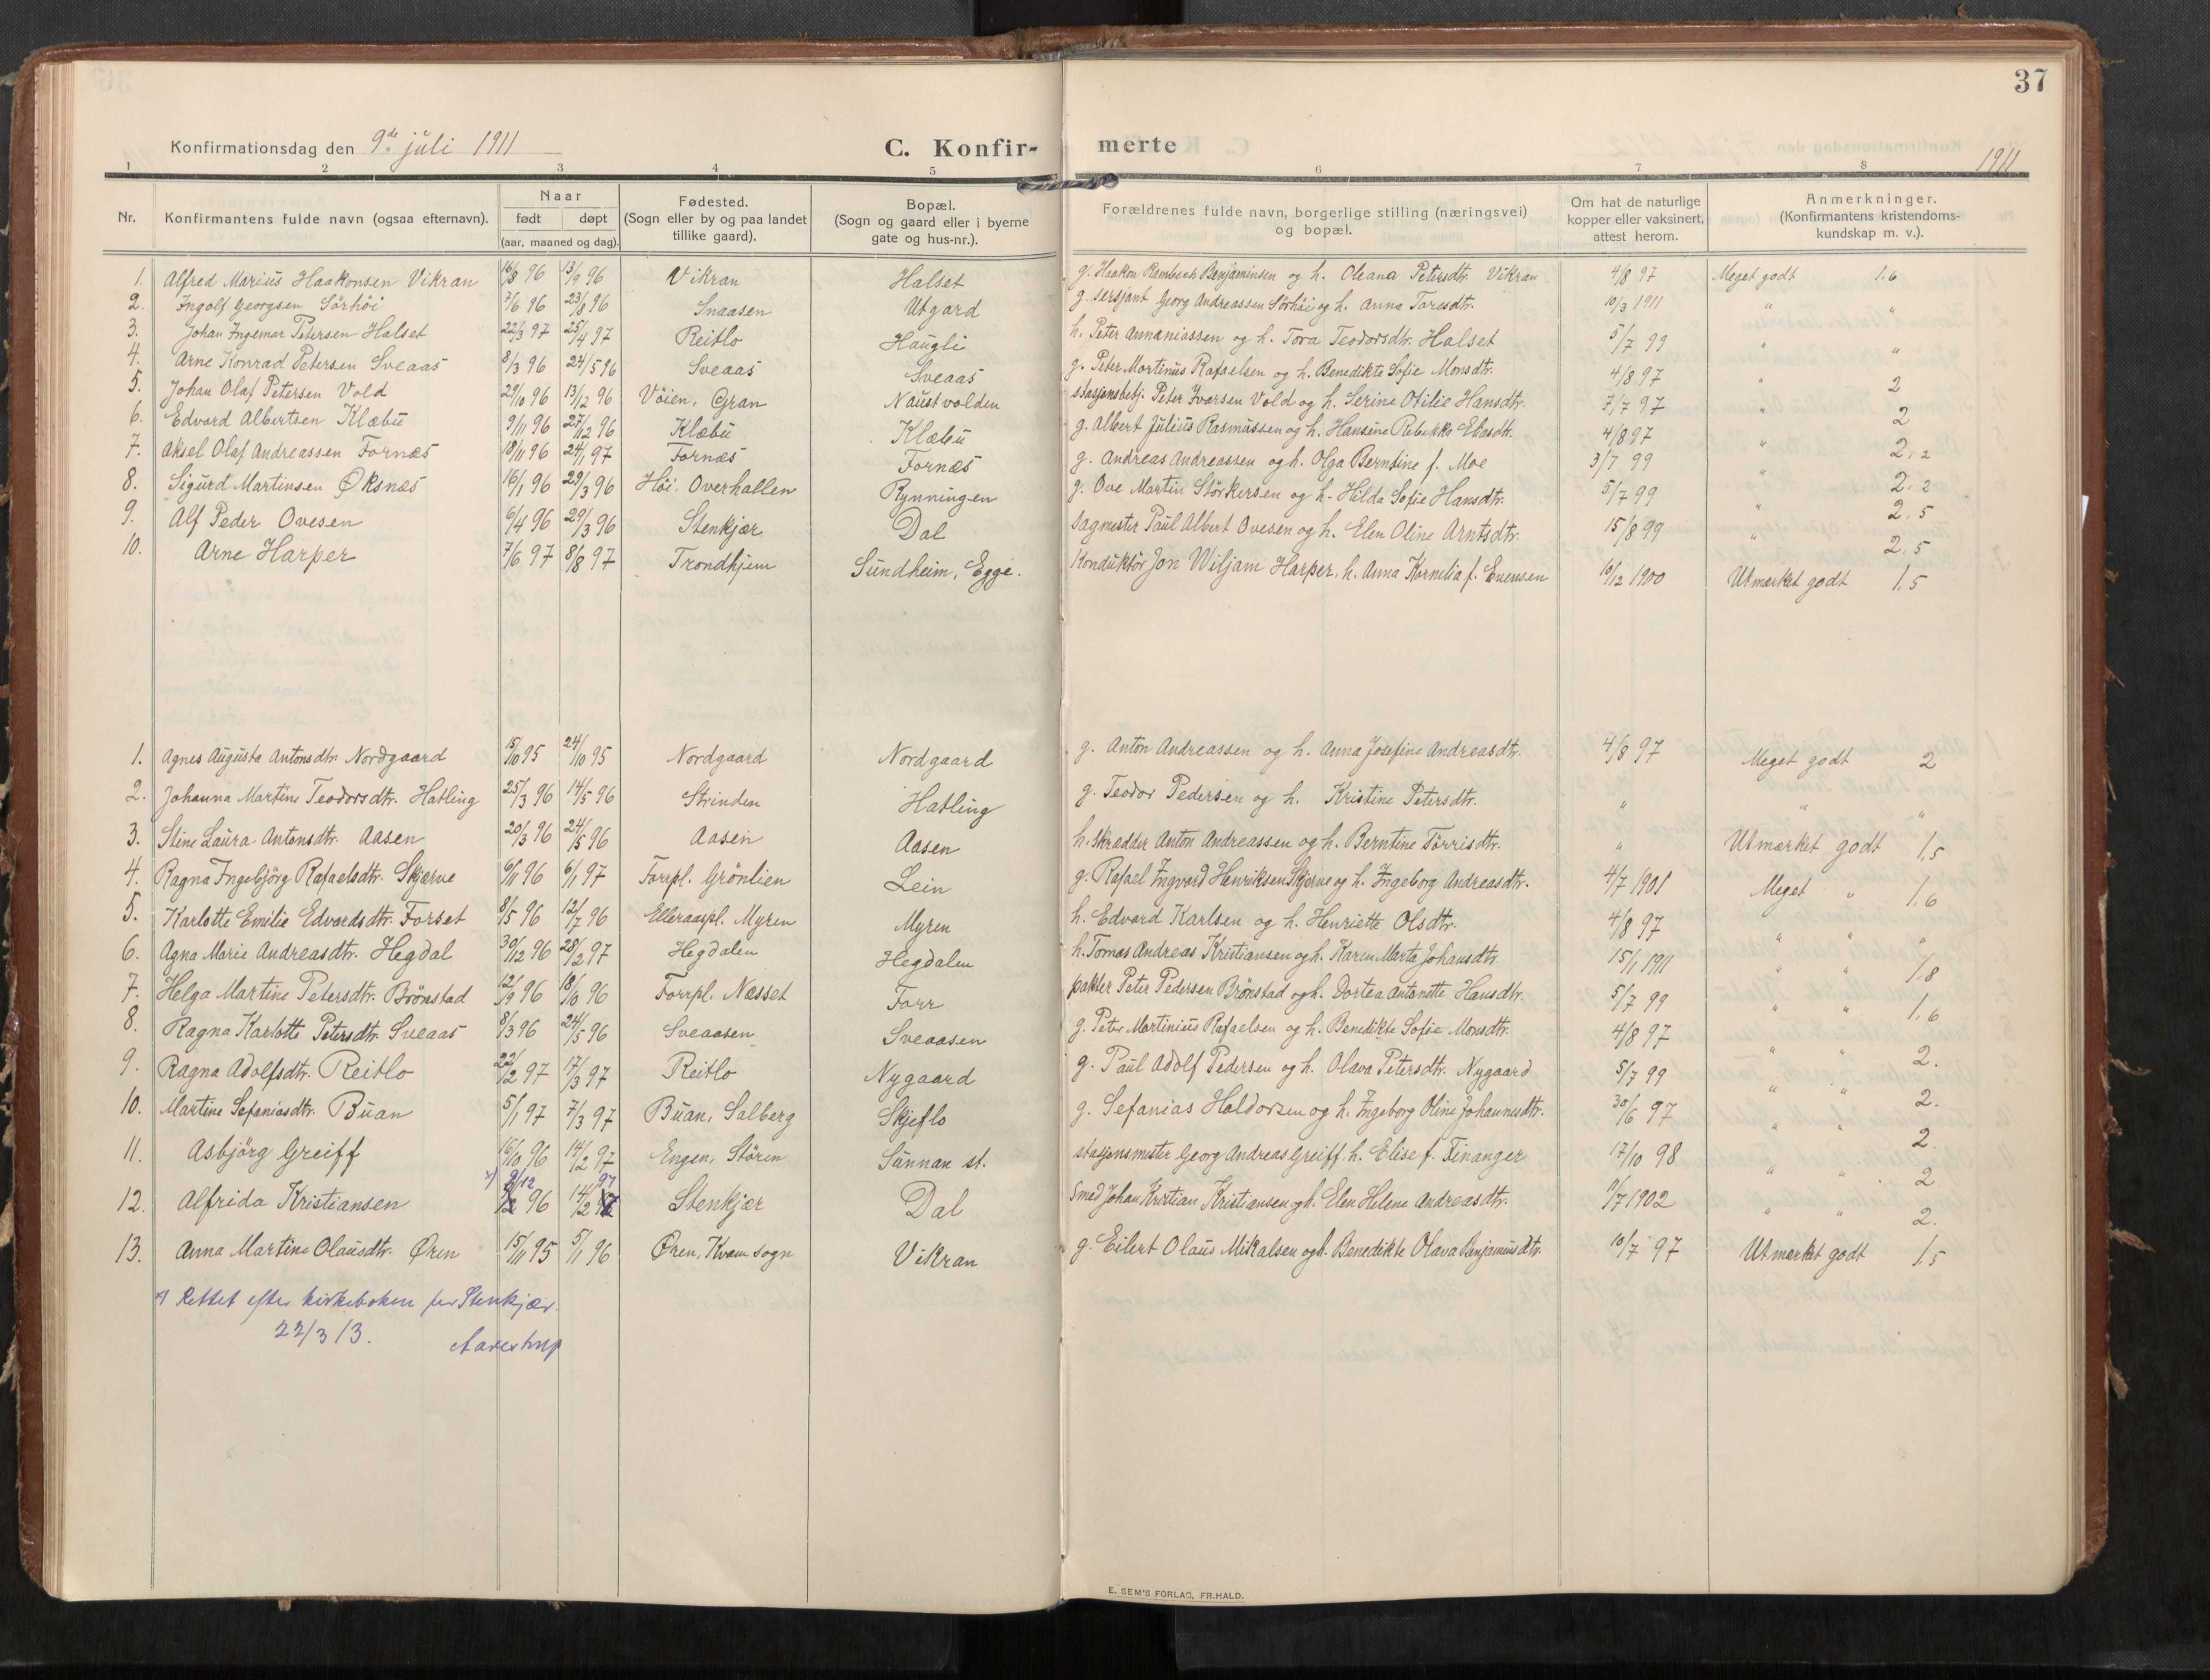 37
Konfirmationsdag den 9de juli 1911
C. Konfir- merte
1911
1 2 3 4 5 6 7 8
Nr.
Konfirmantens fulde navn (ogsaa efternavn).
Naar
født døpt
(aar, maaned og dag).
Fødested.
(Sogn eller by og paa landet
tillike gaard).
Bopæl.
(Sogn og gaard eller i byerne
gate og hus-nr.).
Forældrenes fulde navn, borgerlige stilling (næringsvei)
og bopæl.
Om hat de naturlige
kopper eller vaksinert,
attest herom.
Anmerkninger.
(Konfirmantens kristendoms-
kundskap m. v.).
1. Alfred Marius Haakonsen Vikran 16/8 96 13/9 96 Vikran Halset g. Haakon Rambech Benjaminsen og h. Oleana Petersdtr. Vikran 4/8 97 Meget godt 1.6
2. Ingolf Georgsen Sörhöi 7/6 96 23/8 96 Snaasen Utgard g. sersjant Georg Andreassen Sörhöi og h. Anna Toresdtr. 10/3 1911 " "
3. Johan Ingemar Petersen Halset 22/3 97 25/4 97 Reitlo Haugli h. Peter Annaniassen og h. Tora Teodorsdtr. Halset 5/7 99 " "
4. Arne Konrad Petersen Sveaas 8/3 96 24/5 96 Sveaas Sveaas g. Peter Martinus Rafaelsen og h. Benedikte Sofie Monsdtr. 4/8 97 " 2
5. Johan Olaf Petersen Vold 29/10 96 13/12 96 Vöien, Gran Naustvolden stasjonsbetj. Peter Iversen Vold og h. Serine Otilie Hansdtr. 7/7 97 " 2
6. Edvard Albertsen Klæbu 9/11 96 27/12 96 Klæbu Klæbu g. Albert Julius Rasmussen og h. Hansine Rebekka Eliasdtr. 4/8 97 " 2,2
7. Aksel Olaf Andreassen Fornæs 18/11 96 24/1 97 Fornæs Fornæs g. Andreas Andreassen og h. Olga Berntine f. Moe 3/7 99 " 2,2
8. Sigurd Martinsen Øksnæs 16/1 96 29/3 96 Höi, Overhallen Rynningen g. Ove Martin Störkersen og h. Hilda Sofie Hansdtr. 5/7 99 " 2,5
9. Alf Peder Ovesen 6/4 96 29/3 96 Stenkjær Dal sagmester Paul Albert Ovesen og h. Elen Oline Arntsdtr. 15/8 99 " 2,5
10. Arne Harper 7/6 97 8/8 97 Trondhjem Sundheim, Egge. Konduktör Jon Wiljam Harper, h. Anna Kornelia f. Evensen 6/12 1900 Utmerket godt 1,5
1. Agnes Augusta Antonsdtr. Nordgaard 15/10 95 24/10 95 Nordgaard Nordgaard g. Anton Andreassen og h. Anna Josefine Andreasdtr. 4/8 97 Meget godt 2
2. Johanna Martine Teodorsdtr. Hatling 25/3 96 14/5 96 Strinden Hatling g. Teodor Pedersen og h. Kristine Petersdtr. " " "
3. Stine Laura Antonsdtr. Aasen 20/3 96 24/5 96 Aasen Aasen h. skrædder Anton Andreassen og h. Berntine Törrisdtr. " Utmærket godt 1,5
4. Ragna Ingebjörg Rafaelsdtr. Skjerve 6/11 96 6/1 97 Forrpl. Grönlien Lein g. Rafael Ingvard Henriksen Skjerve og h. Ingeborg Andreasdtr. 4/7 1901 Meget " 1,6
5. Karlotte Emilie Edvardsdtr. Forset 8/5 96 12/7 96 Elleraaspl. Myren Myren h. Edvard Karlsen og h. Henriette Olsdtr. 4/8 97 " " "
6. Agna Marie Andreasdtr. Hegdal 30/12 96 28/2 97 Hegdalen Hegdalen h. Tomas Andreas Kristiansen og h. Karen Marta Johansdtr. 15/1 1911 " " 1,8
7. Helga Martine Petersdtr. Brönstad 12/9 96 18/10 96 Forrpl. Næsset Forr pakter Peter Pedersen Brönstad og h. Dortea Antonette Hansdtr. 5/7 99 " " 1,6
8. Ragna Karlotte Petersdtr. Sveaas 8/3 96 24/5 96 Sveaasen Sveaasen g. Peter Martinius Rafaelsen og h. Benedikte Sofie Monsdtr. 4/8 97 " " 2.
9. Ragna Adolfsdtr. Reitlo 22/2 97 17/3 97 Reitlo Nygaard g. Paul Adolf Pedersen og h. Olava Petersdtr. Nygaard 5/7 99 " " 2.
10. Martine Sefaniasdtr. Buan 5/1 97 7/3 97 Buan, Salberg Skjeflo g. Sefanias Haldorsen og h. Ingeborg Oline Johannesdtr. 30/6 97 " " 2.
11. Asbjörg Greiff 16/10 96 14/2 97 Engen, Stören Sunnan st. stasjonsmester Georg Andreas Greiff, h. Elise f. Finanger 17/10 98 " " 2
x) 9/12 97
12. Alfrida Kristiansen 96 14/2 Stenkjær Dal Smed Johan Kristian Kristiansen og h. Elen Helene Andreasdtr. 9/7 1902 " " 2.
13. Anna Martine Olausdtr. Øren 15/11 95 5/1 96 Øren, Kvam sogn Vikran g. Eilert Olaus Mikalsen og h. Benedikte Olava Benjaminsdtr. 10/7 97 Utmerket godt 1,5
x) Rettet efter kirkeboken for Stenkjær.
22/3 13. Aarestrup
E. SEM'S FORLAG, FR.HALD.